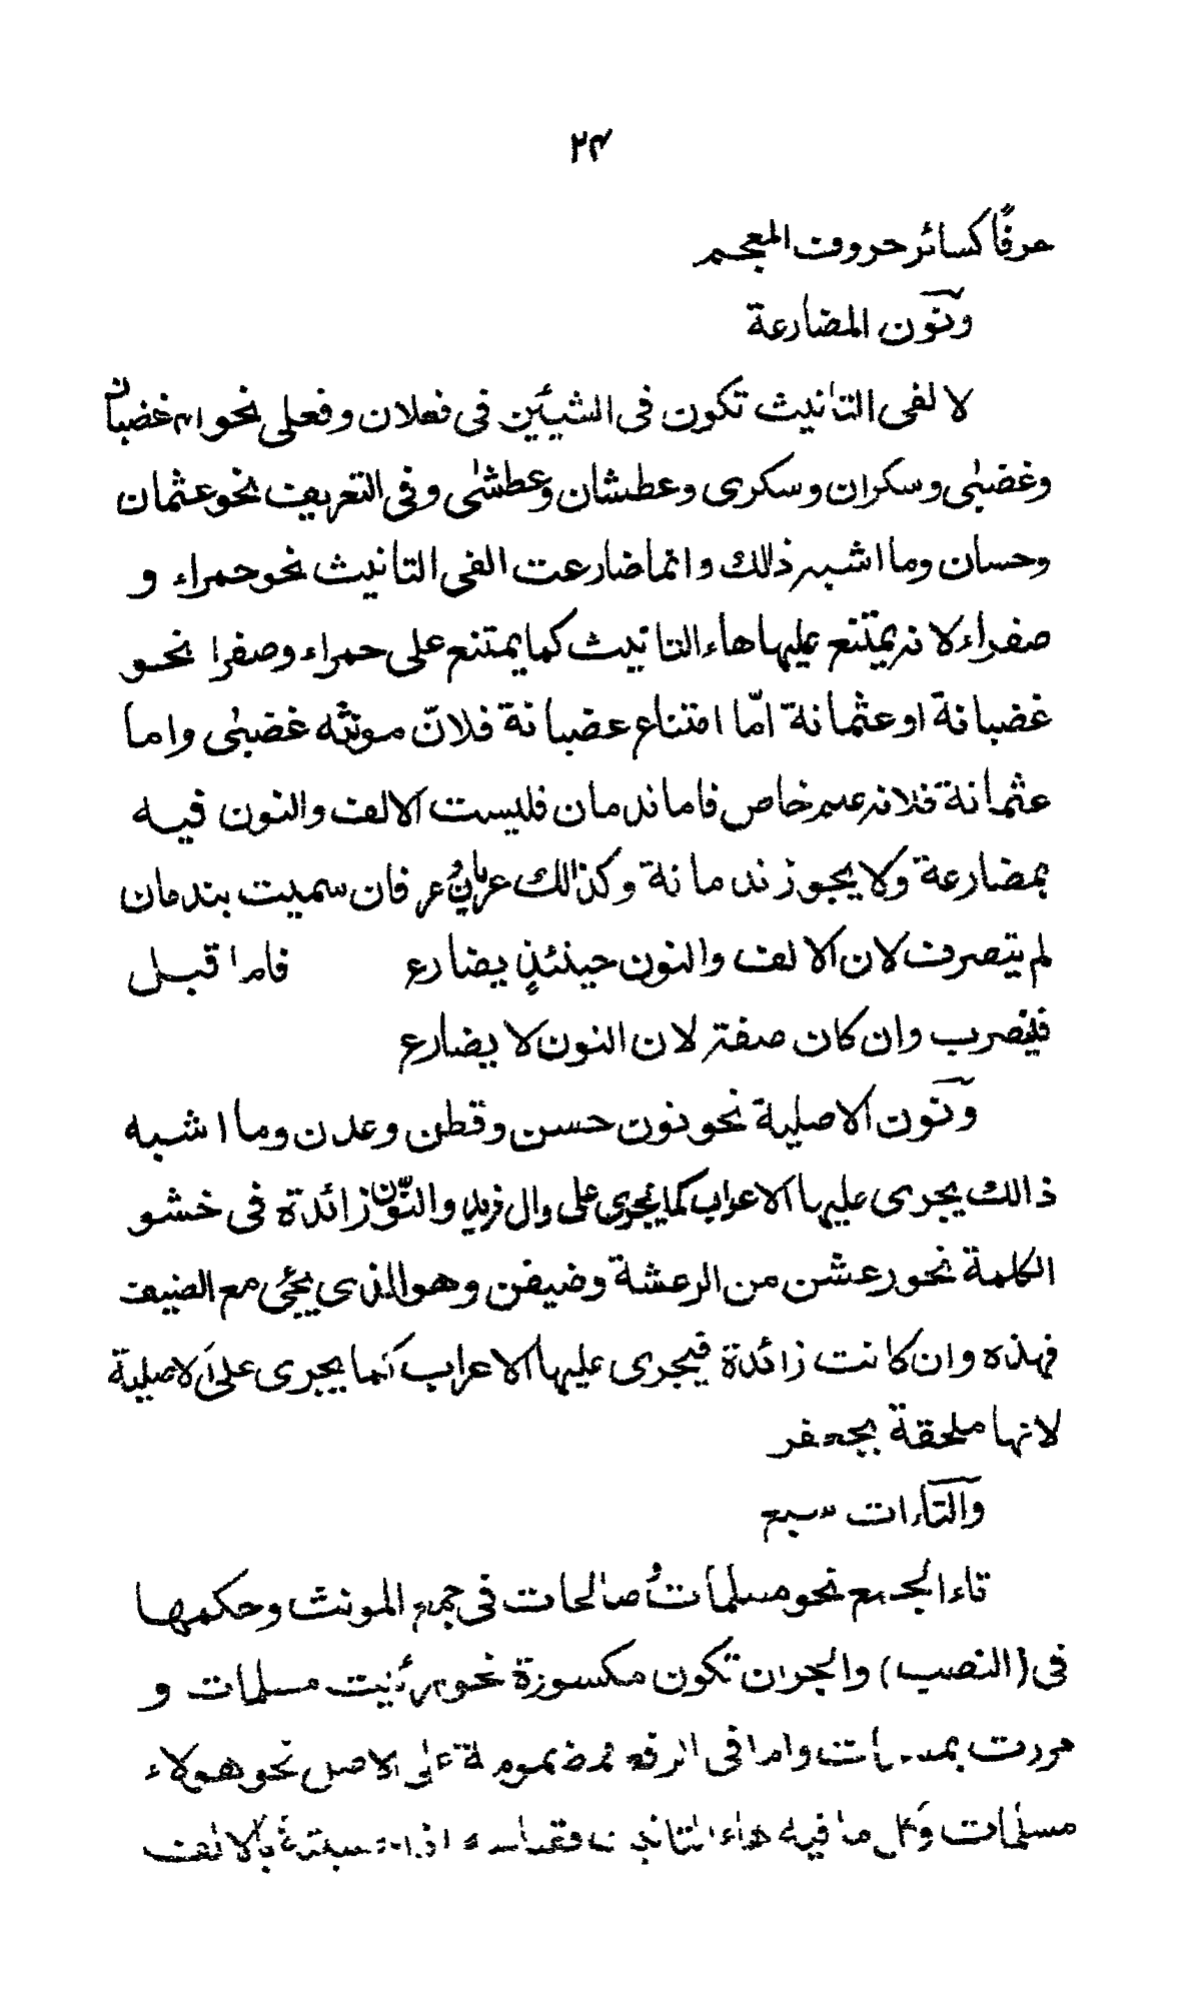 ٢٤
حرفًا كسائر حروف المعجم
ونون المضارعة
لالفى التانيث تكون فى الشيئين فى فعلان وفعلى نحو غضبان
وغضبى وسكران وسكرى وعطشان وعطشى وفى التعريف نحو عثمان
وحسان وما اشبه ذلك وانما ضارعت الفى التانيث نحو حمراء و
صفراء لانه يمتنع عليها هاء التانيث كما يمتنع على حمراء وصفرا نحو
غضبانة او عثمانة امّا امتناع عضبانة فلانّ مونثه غضبى واما
عثمانة فلانه علم خاص فاما ندمان فليست الالف والنون فيه
بمضارعة ولا يجوز ندمانة وكذالك عريانٌ فان سميت بندمان
لم يتصرف لان الالف والنون حينئذٍ يضارع فاما قبل
فينصرب وان كان صفته لان النون لا يضارع
ونون الاصلية نحو نون حسن وقطن وعدن وما اشبه
ذالك يجرى عليها الاعراب كما يجرى على دال زيد والنّون زائدة فى خشو
الكلمة نحو رعشن من الرعشة وضيفن وهو الذى يجئى مع الضيف
فهذه وان كانت زائدة فيجرى عليها الاعراب كما يجرى على الاصلية
لانها ملحقة بجعفر
والتاءات سبع
تاء الجمع نحو مسلماتُ صالحات فى جمع المونث وحكمها
فى (النصب) والجران تكون مكسوزة نحو رئيت مسلمات و
مررت بمسلمات واما فى الرفع فمضمومة على الاصل نحو هولاء
مسلمات وكل ما فيه هاء التانيث فقد اذا بالالف